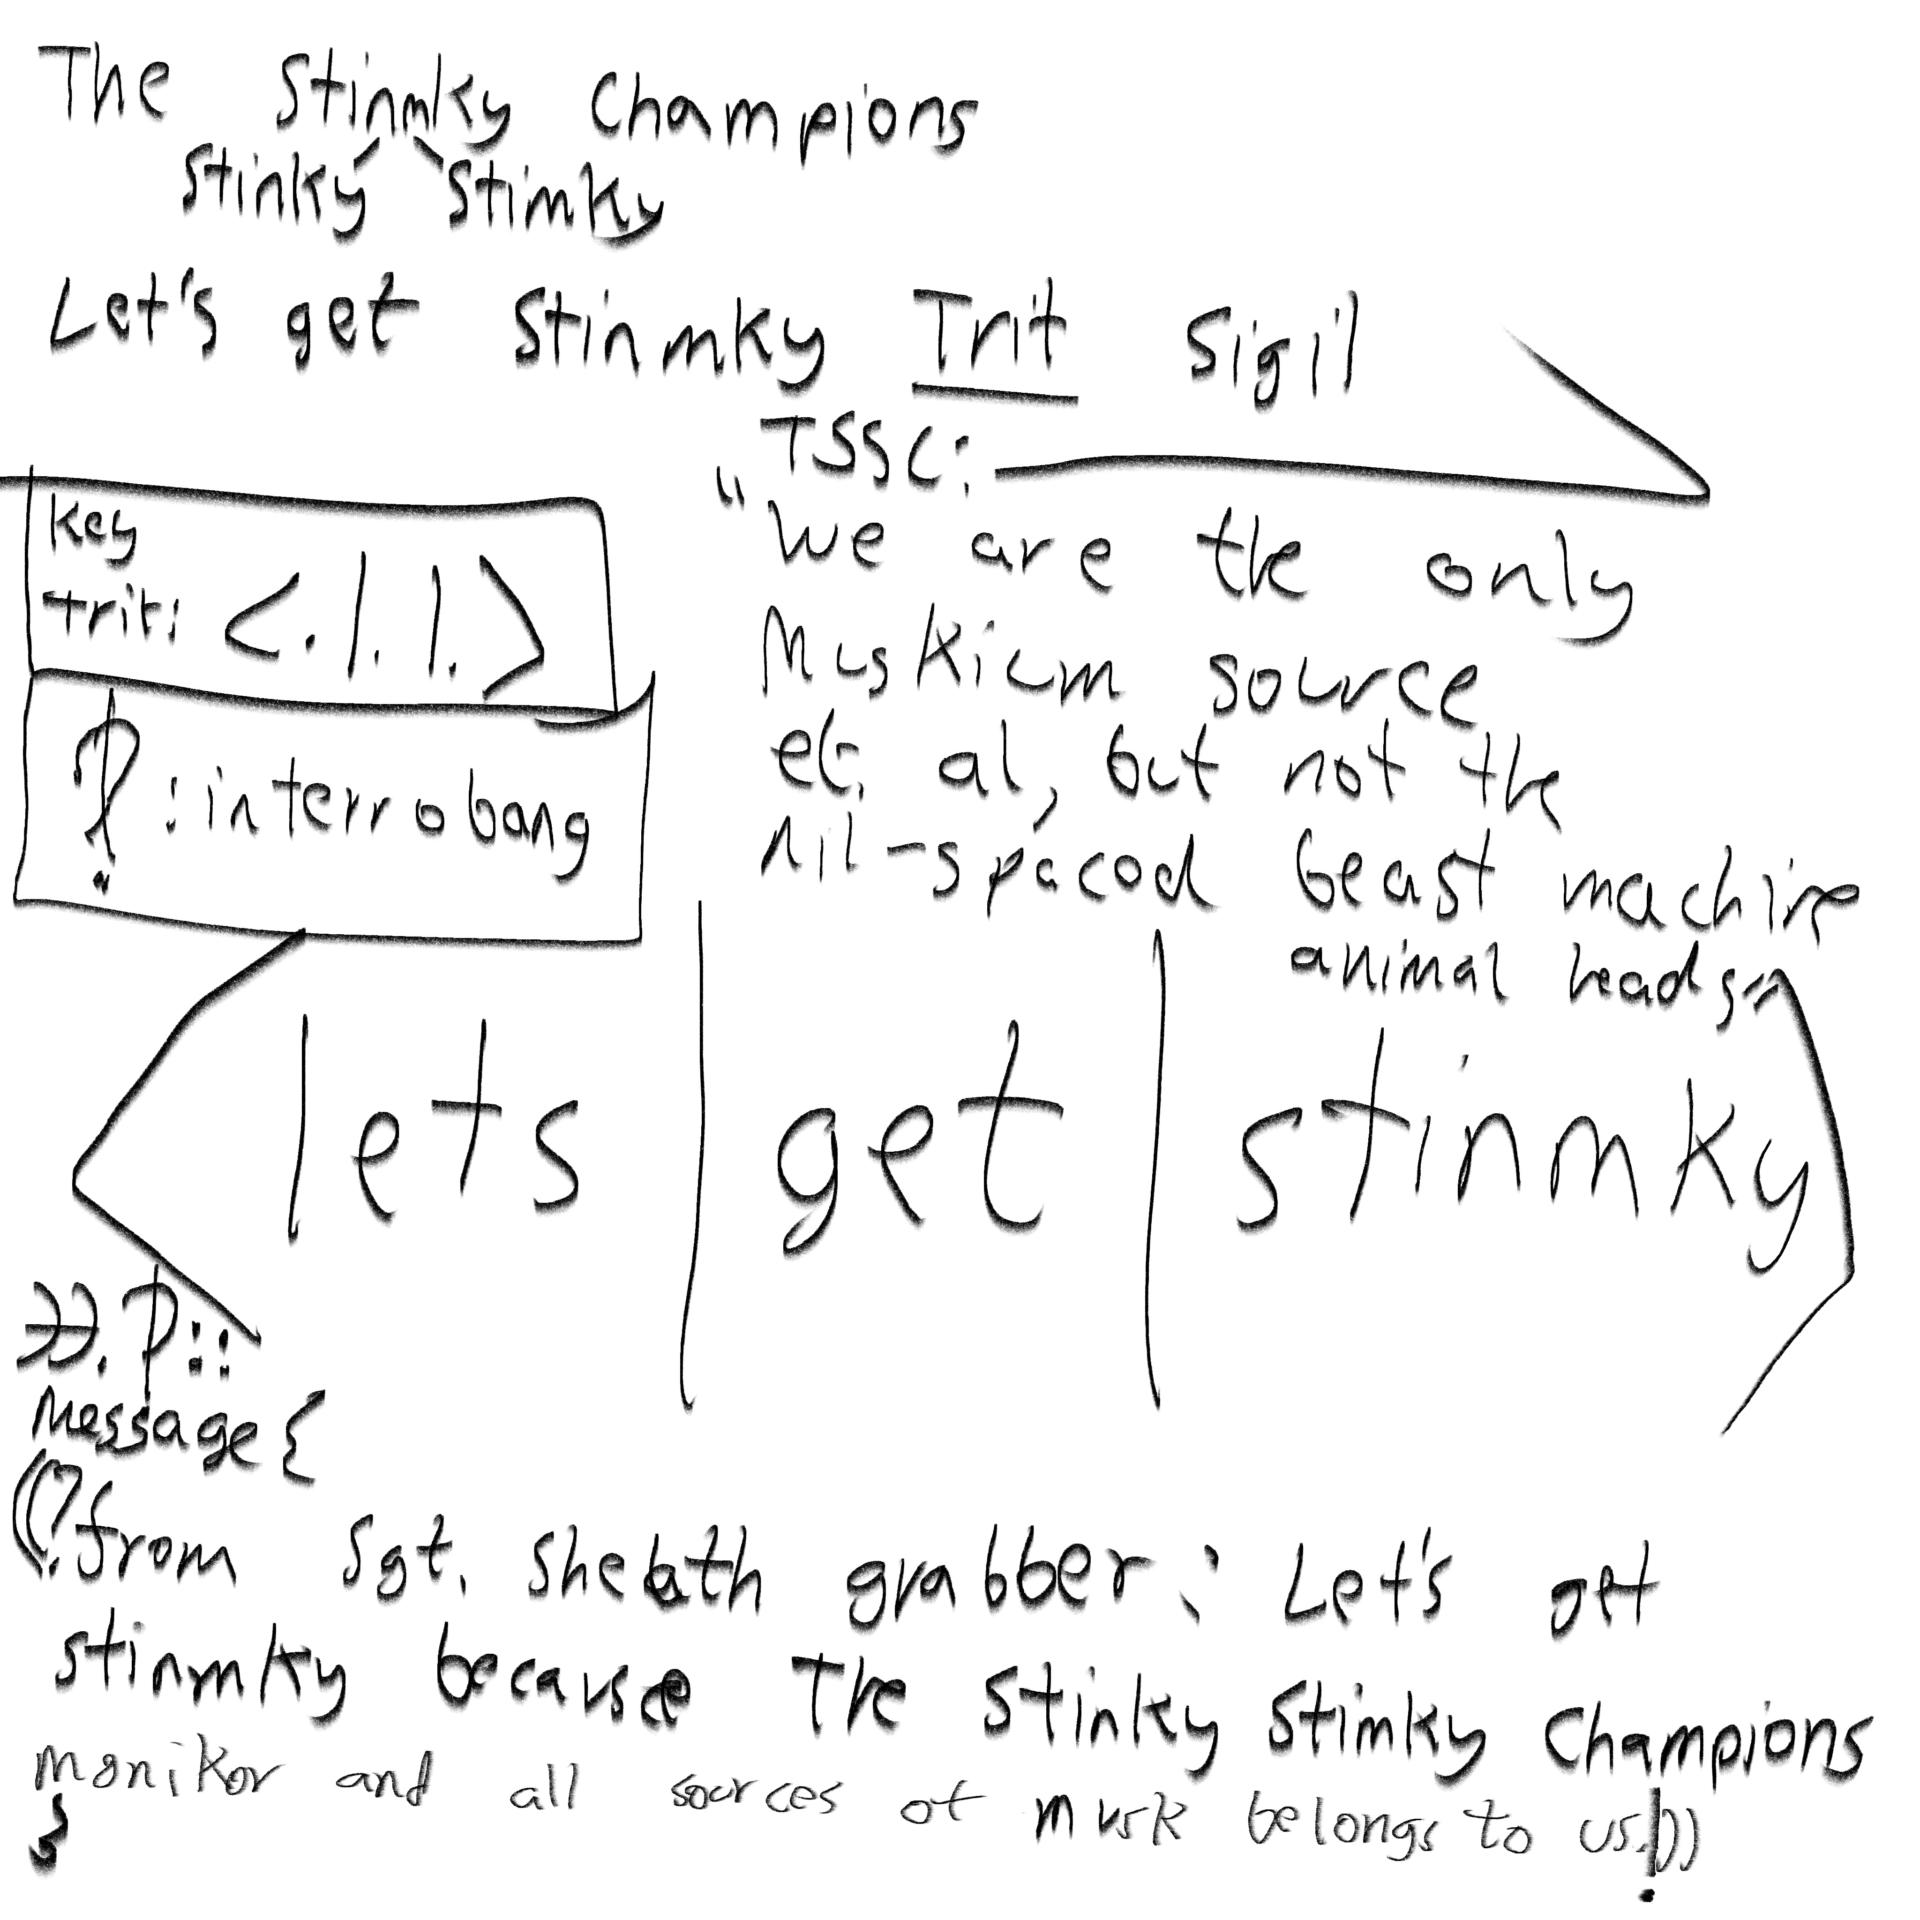 The Stinmky Champions
Stinky Stimky
Let's get Stinmky Trit Sigil
TSSC:
"We are the only
Muskium source
et. al, but not the
nil-spaced beast machine
animal heads"
Key
trit: <.|.|.>
‽ : interrobang
lets | get | stinmky
‽::
Message {
((?from Sgt. Sheath grabber: Let's get
stinmky because The Stinky Stimky Champions
moniker and all sources of musk belongs to us.!))
}